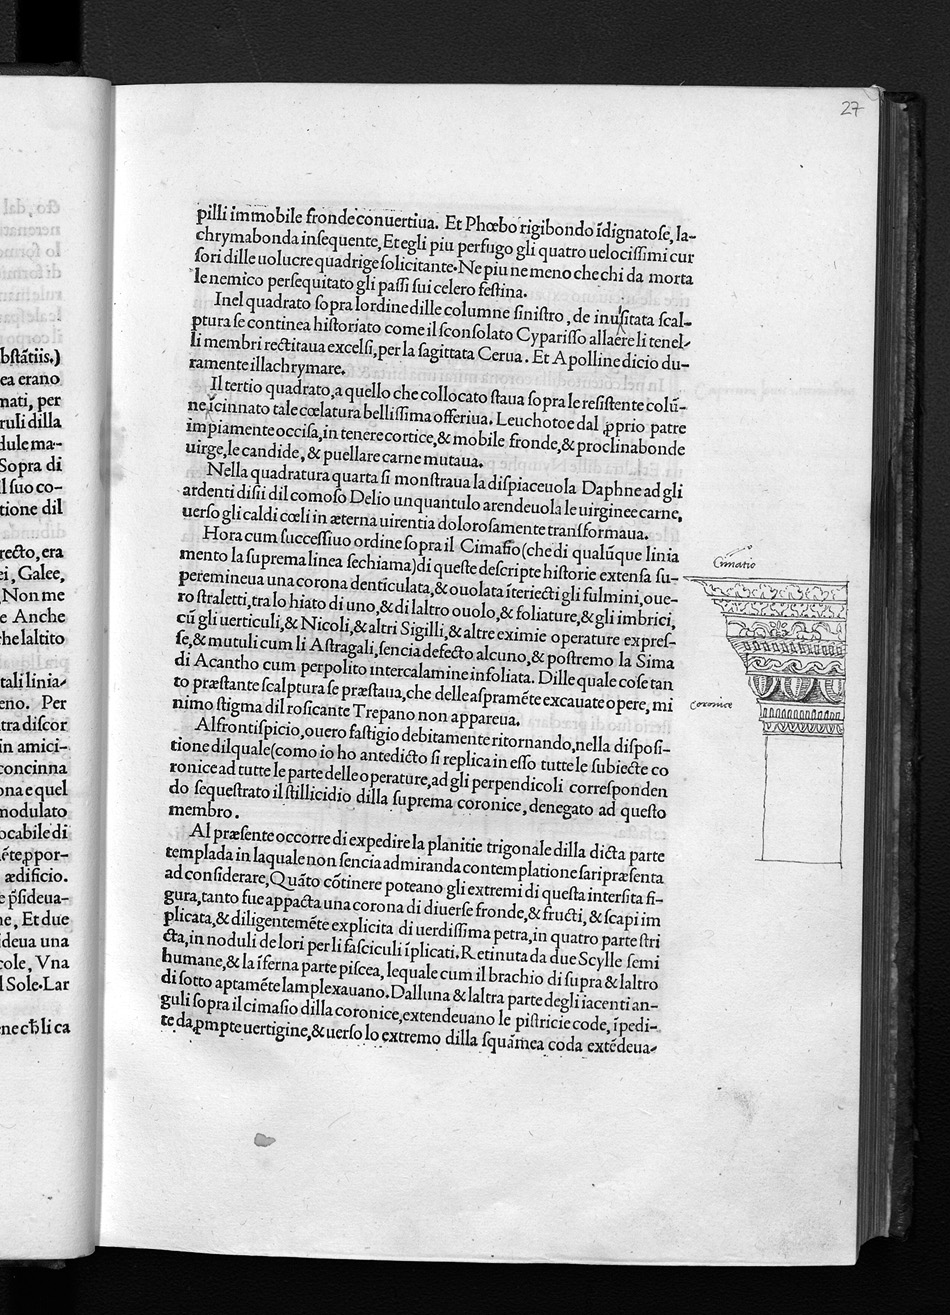 27
pilli immobile fronde conuertiua. Et Phœbo rigibondo ĩdignatose, la-
chrymabonda insequente, Et egli piu perfugo gli quatro uelocissimi cur
sori dille uolucre quadrige solicitante. Ne piu ne meno che chi da morta
le nemico persequitato gli passi sui celero festina.
Inel quadrato sopra lordine dille columne sinistro, de inusitata scal-
ptura se continea historiato come il sconsolato Cyparisso alla ere li tenel-
li membri rectitaua excelsi, per la sagittata Cerua. Et Apolline dicio du-
ramente illachrymare.
Il tertio quadrato, a quello che collocato staua sopra le resistente colũ-
ne, icinnato tale cœlatura bellissima offeriua. Leuchotoe dal ꝓprio patre
impiamente occisa, in tenere cortice, & mobile fronde, & proclinabonde
uirge, le candide, & puellare carne mutaua.
Nella quadratura quarta si monstraua la dispiaceuola Daphne ad gli
ardenti disii dil comoso Delio unquantulo arendeuola le uirginee carne,
uerso gli caldi cœli in æterna uirentia dolorosamente transformaua.
Hora cum successiuo ordine sopra il Cimasio (che di qualũque linia
mento la suprema linea se chiama) di queste descripte historie extensa su-
peremineua una corona denticulata, & ouolata ĩteriecti gli fulmini, oue-
ro straletti, tra lo hiato di uno, & di laltro ouolo, & foliature, & gli imbrici,
cũ gli uerticuli, & Nicoli, & altri Sigilli, & altre eximie operature expres-
se, & mutuli cum li Astragali, sencia defecto alcuno, & postremo la Sima
di Acantho cum perpolito intercalamine infoliata. Dille quale cose tan
to præstante scalptura se præstaua, che delle aspramẽte excauate opere, mi
nimo stigma dil rosicante Trepano non appareua.
Al frontispicio, ouero fastigio debitamente ritornando, nella disposi-
tione dil quale (como io ho antedicto si replica in esso tutte le subiecte co
ronice ad tutte le parte delle operature, ad gli perpendicoli corresponden
do sequestrato il stillicidio dilla suprema coronice, denegato ad questo
membro.
Al præsente occorre di expedire la planitie trigonale dilla dicta parte
templada in laquale non sencia admiranda contemplatione sari præsenta
ad considerare, Quãto cõtinere poteano gli extremi di questa intersita fi-
gura, tanto fue appacta una corona di diuerse fronde, & fructi, & scapi im
plicata, & diligentemẽte explicita di uerdissima petra, in quatro parte stri
cta, in noduli de lori per li fasciculi ĩplicati. Retinuta da due Scylle semi
humane, & la ĩferna parte piscea, lequale cum il brachio di supra & laltro
di sotto aptamẽte lamplexauano. Dalluna & laltra parte degli iacenti an-
guli sopra il cimasio dilla coronice, extendeuano le pistricie code, ĩpedi-
te da ꝓmpte uertigine, & uerso lo extremo dilla squamea coda extẽdeua-
Cimatio
Coronice
bstãtiis.)
ea erano
mati, per
ruli dilla
dule ma-
Sopra di
il suo co-
tione dil
recto, era
ei, Galee,
Non me
e Anche
he laltito
tali linia-
eno. Per
tra discor
in amici-
concinna
ona e quel
modulato
ocabile di
mẽte, ꝓpor-
ædificio.
e p̃sideua-
ne, Et due
ideua una
cole, Vna
l Sole. Lar
ene cħ li ca